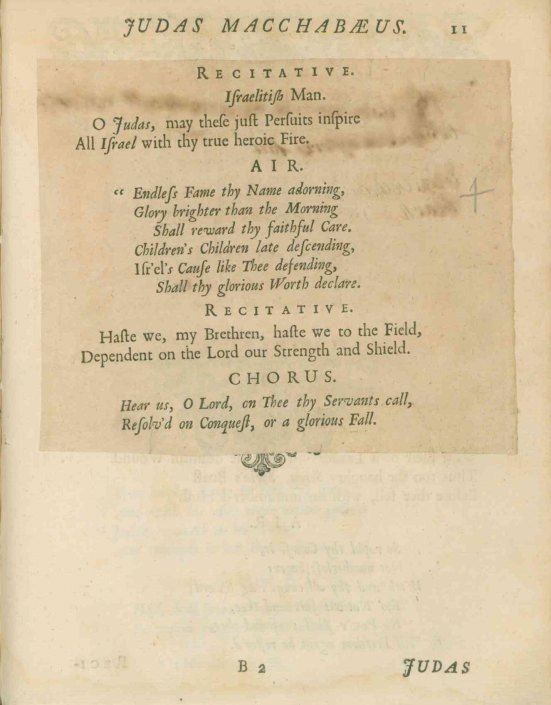 JUDAS MACCHABÆUS. 11
RECITATIVE.
Iſraelitiſh Man.
O Judas, may theſe juſt Perſuits inſpire
All Iſrael with thy true heroic Fire.
AIR.
“ Endleſs Fame thy Name adorning,
Glory brighter than the Morning
Shall reward thy faithful Care.
Children's Children late deſcending,
Iſr'el's Cauſe like Thee defending,
Shall thy glorious Worth declare.
RECITATIVE.
Haſte we, my Brethren, haſte we to the Field,
Dependent on the Lord our Strength and Shield.
CHORUS.
Hear us, O Lord, on Thee thy Servants call,
Reſolv'd on Conqueſt, or a glorious Fall.
B 2 JUDAS